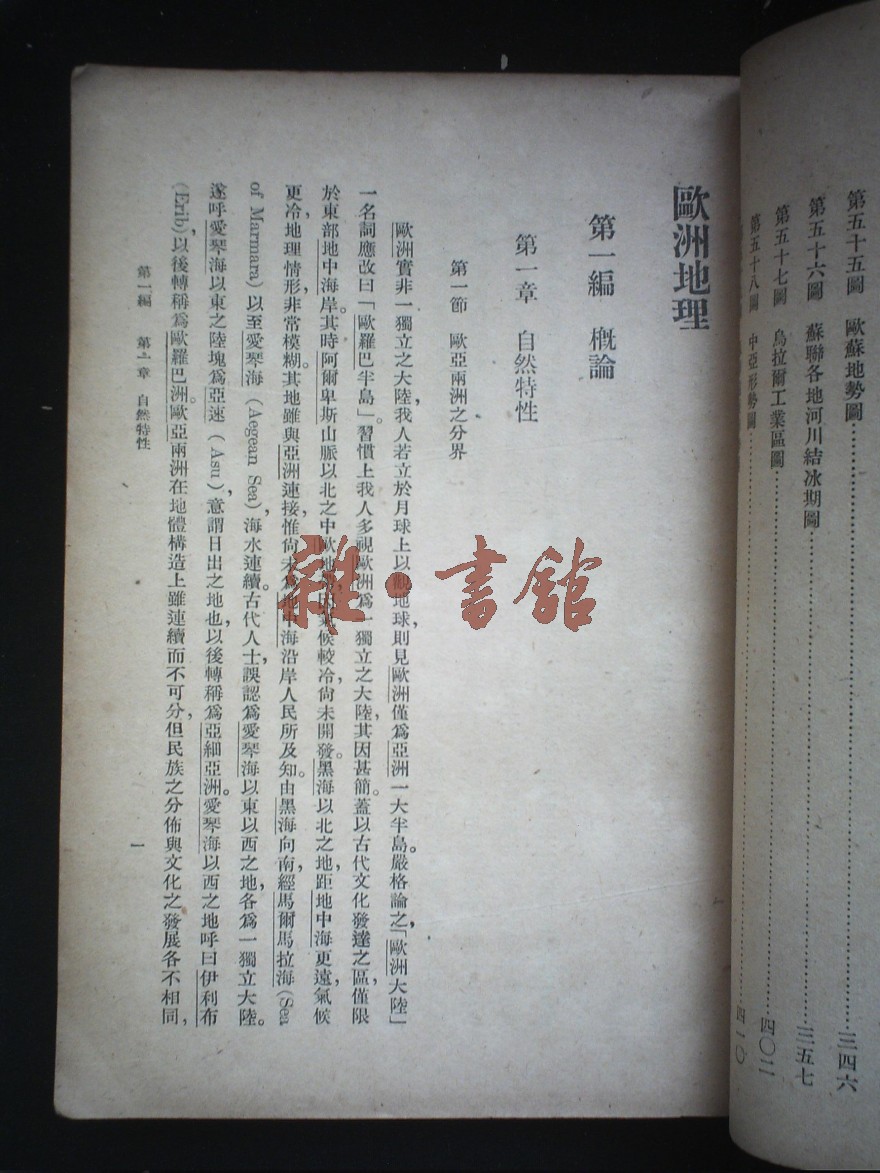 第五十五圖　歐蘇地勢圖…………三四六
第五十六圖　蘇聯各地河川結冰期圖…………三五七
第五十七圖　烏拉爾工業區圖…………四〇二
第五十八圖　中亞形勢圖…………四一〇
歐洲地理
第一編　概論
第一章　自然特性
第一節　歐亞兩洲之分界
歐洲實非一獨立之大陸，我人若立於月球上以觀地球，則見歐洲僅爲亞洲一大半島。嚴格論之，「歐洲大陸」
一名詞應改曰「歐羅巴半島」。習慣上我人多視歐洲爲一獨立之大陸，其因甚簡。蓋以古代文化發達之區，僅限
於東部地中海岸。其時阿爾卑斯山脈以北之中歐地候較冷，尙未開發。黑海以北之地，距地中海更遠，氣候
更冷，地理情形，非常模糊。其地雖與亞洲連接，惟尙未爲地中海沿岸人民所及知。由黑海向南，經馬爾馬拉海(Sea
of Marmara)以至愛琴海(Aegean Sea)，海水連續。古代人士，誤認爲愛琴海以東以西之地，各爲一獨立大陸。
遂呼愛琴海以東之陸塊爲亞速(Asu)，意謂日出之地也，以後轉稱爲亞細亞洲。愛琴海以西之地呼曰伊利布
(Erib)，以後轉稱爲歐羅巴洲。歐亞兩洲在地體構造上雖連續而不可分，但民族之分佈與文化之發展各不相同，
第一編　第一章　自然特性
一
雜·書館